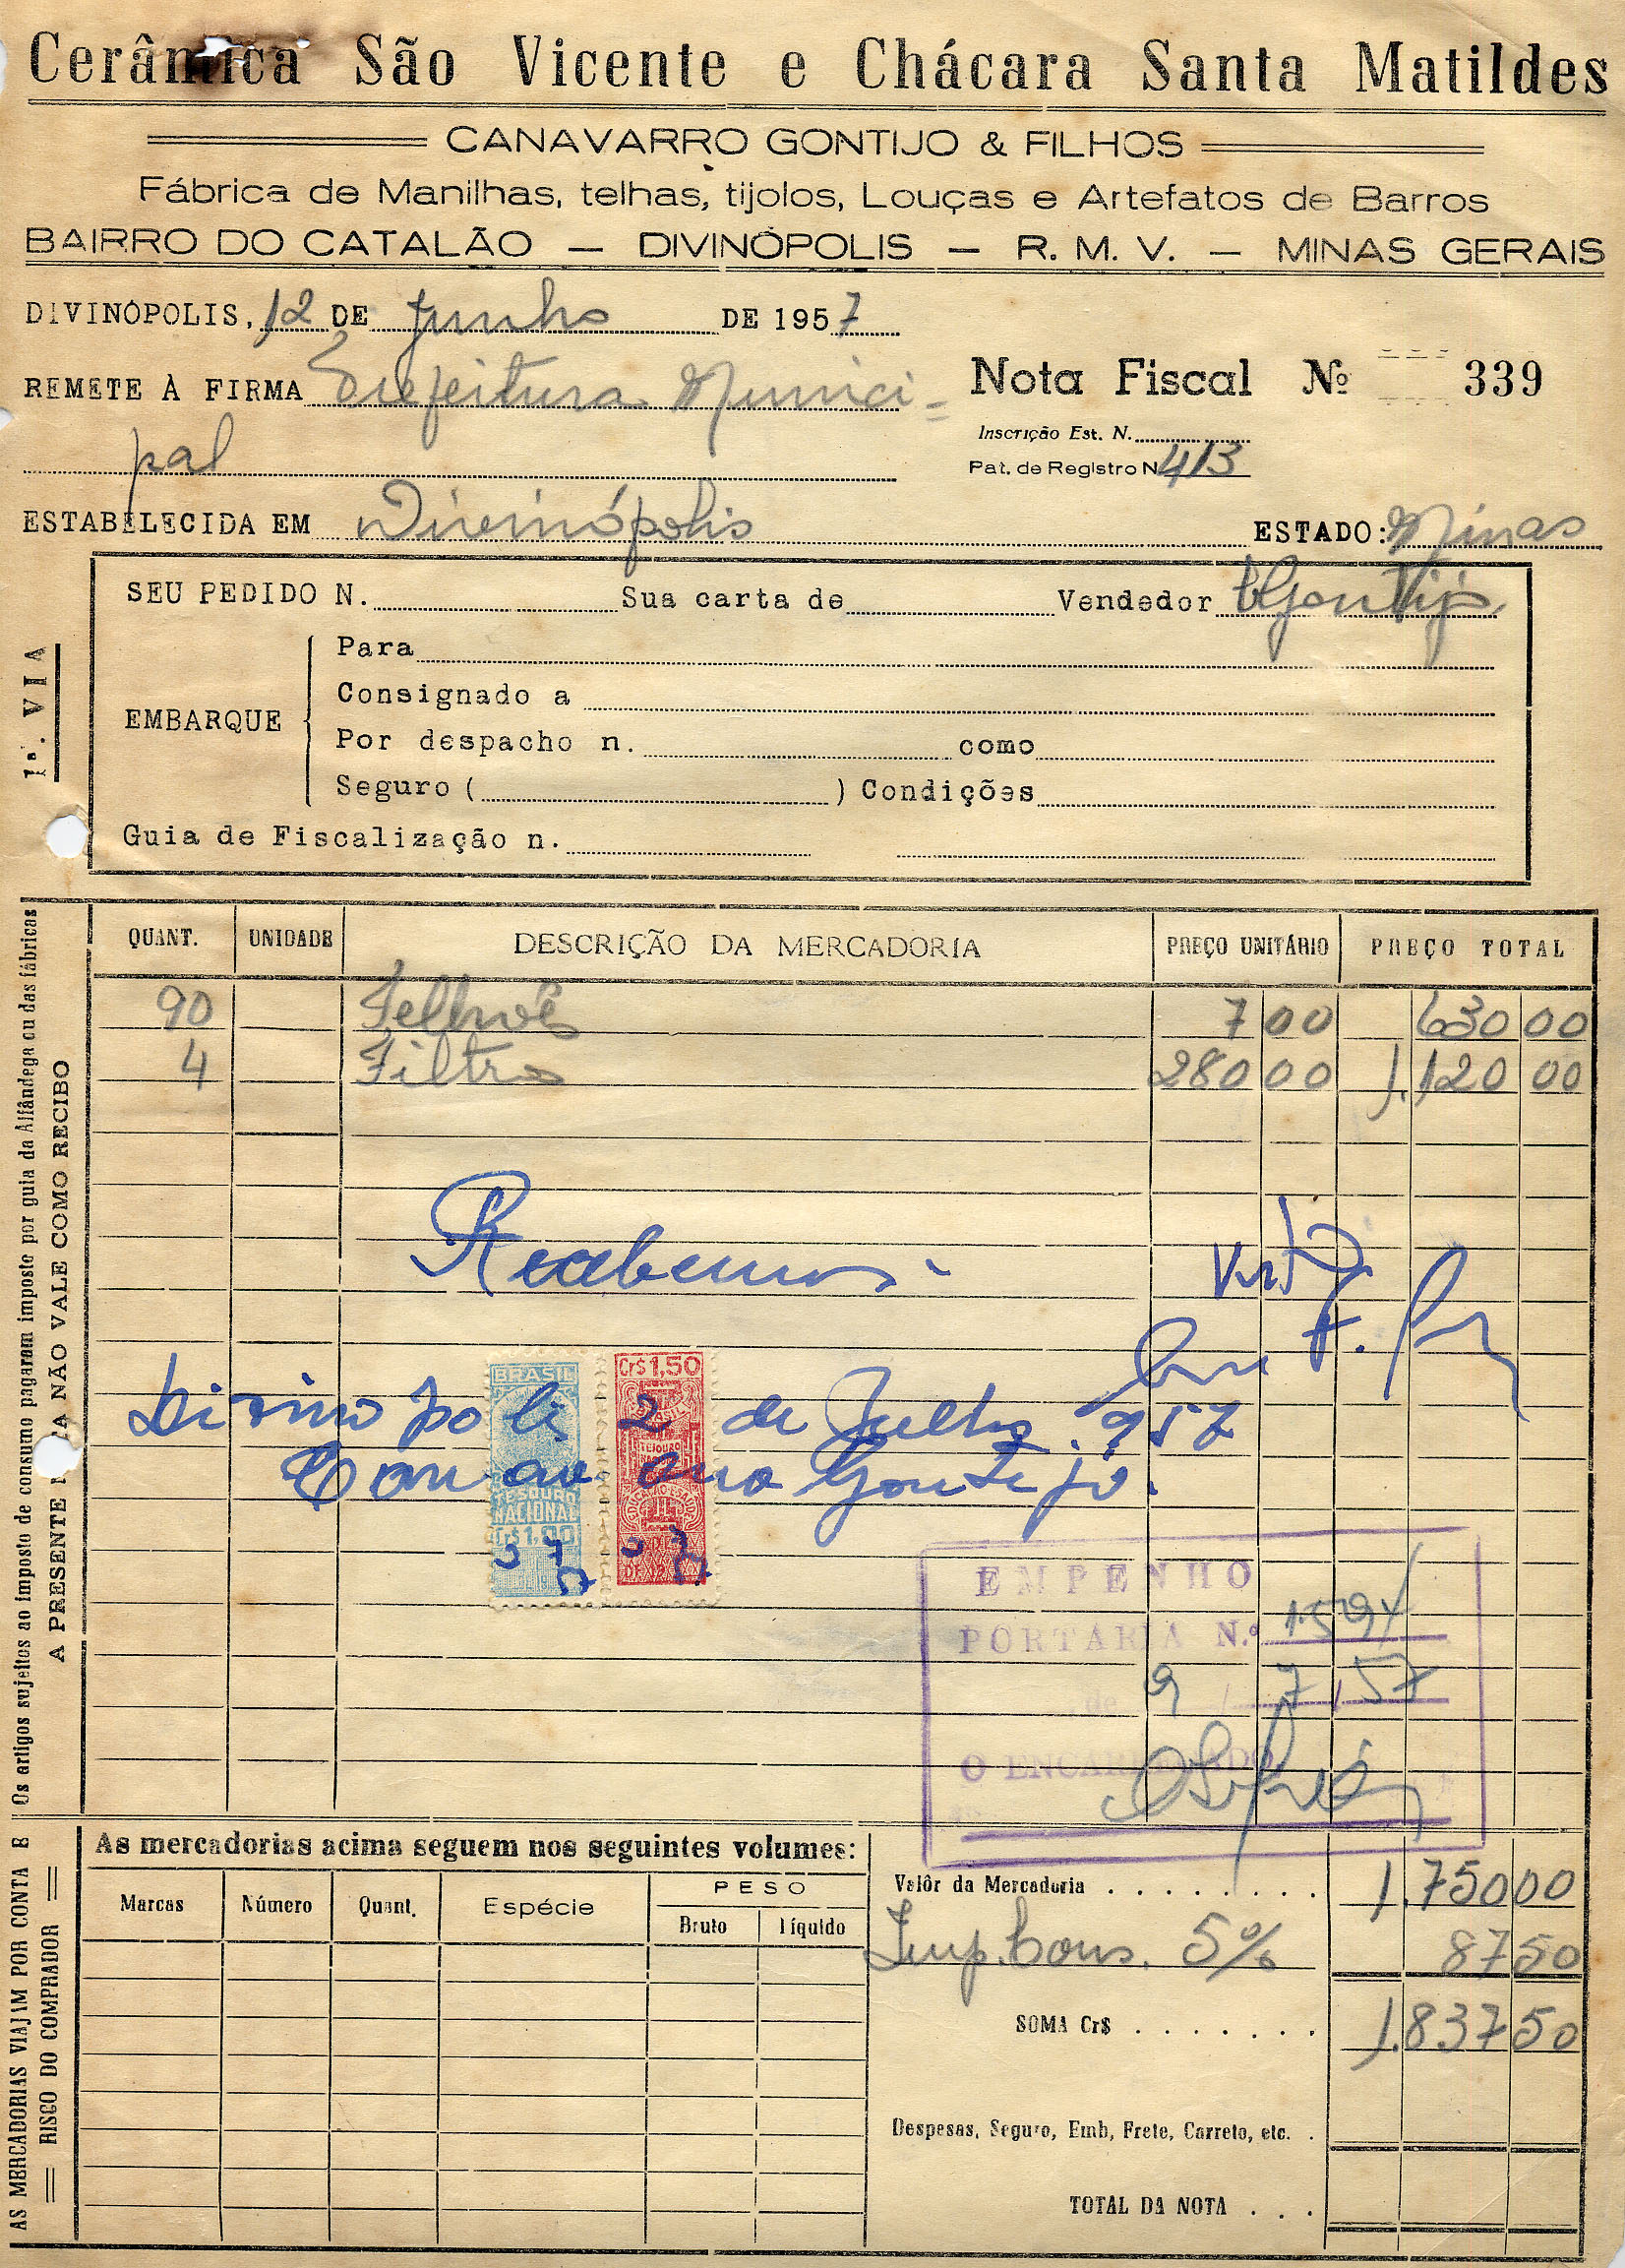 Cerâmica São Vicente e Chácara Santa Matildes
CANAVARRO GONTIJO & FILHOS
Fábrica de Manilhas, telhas, tijolos, Louças e Artefatos de Barros
BAIRRO DO CATALÃO — DIVINÓPOLIS — R. M. V. — MINAS GERAIS
DIVINÓPOLIS, 12 DE Junho DE 1957
REMETE À FIRMA Prefeitura Munici=
pal
Nota Fiscal Nº 339
Inscrição Est. N.
Pat. de Registro N 413
ESTABELECIDA EM Divinópolis ESTADO: Minas
SEU PEDIDO N. Sua carta de Vendedor CGontijo
EMBARQUE
Para
Consignado a
Por despacho n. como
Seguro ( ) Condições
Guia de Fiscalização n.
1ª. VIA
QUANT. UNIDADE DESCRIÇÃO DA MERCADORIA PREÇO UNITÁRIO PREÇO TOTAL
90 7 00 630 00
4 Filtros 280 00 1.120 00
Recebemos
Visto
Divinopolis 2 de Julho 957
Canavarro Gontijo.
BRASIL
TESOURO
NACIONAL
Cr$1,00
3 7 57
Cr$1,50
BRASIL
TESOURO
EDUCAÇÃO E SAUDE
3 7 57
EMPENHO
PORTARIA N.º 1.594
de 9 / 7 / 57
O ENCARREGADO
Os artigos sujeitos ao imposto de consumo pagaram imposto por guia da Alfândega ou das fábricas
A PRESENTE NOTA NÃO VALE COMO RECIBO
AS MERCADORIAS VIAJAM POR CONTA E
RISCO DO COMPRADOR
As mercadorias acima seguem nos seguintes volumes:
Marcas Número Quant. Espécie PESO
Bruto Líquido
Valôr da Mercadoria . . . . . . . . . 1.750 00
Imp. Cons. 5% 87 50
SOMA Cr$ . . . . . . . 1.837 50
Despesas, Seguro, Emb, Frete, Carreto, etc. .
TOTAL DA NOTA . . .